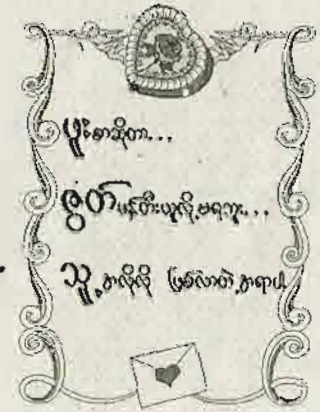 ဖူးစာဆိုတာ...
ဇွတ်ဖန်တီးယူလို့မရဘူး...
သူ့အလိုလို ဖြစ်လာတဲ့အရာပါ